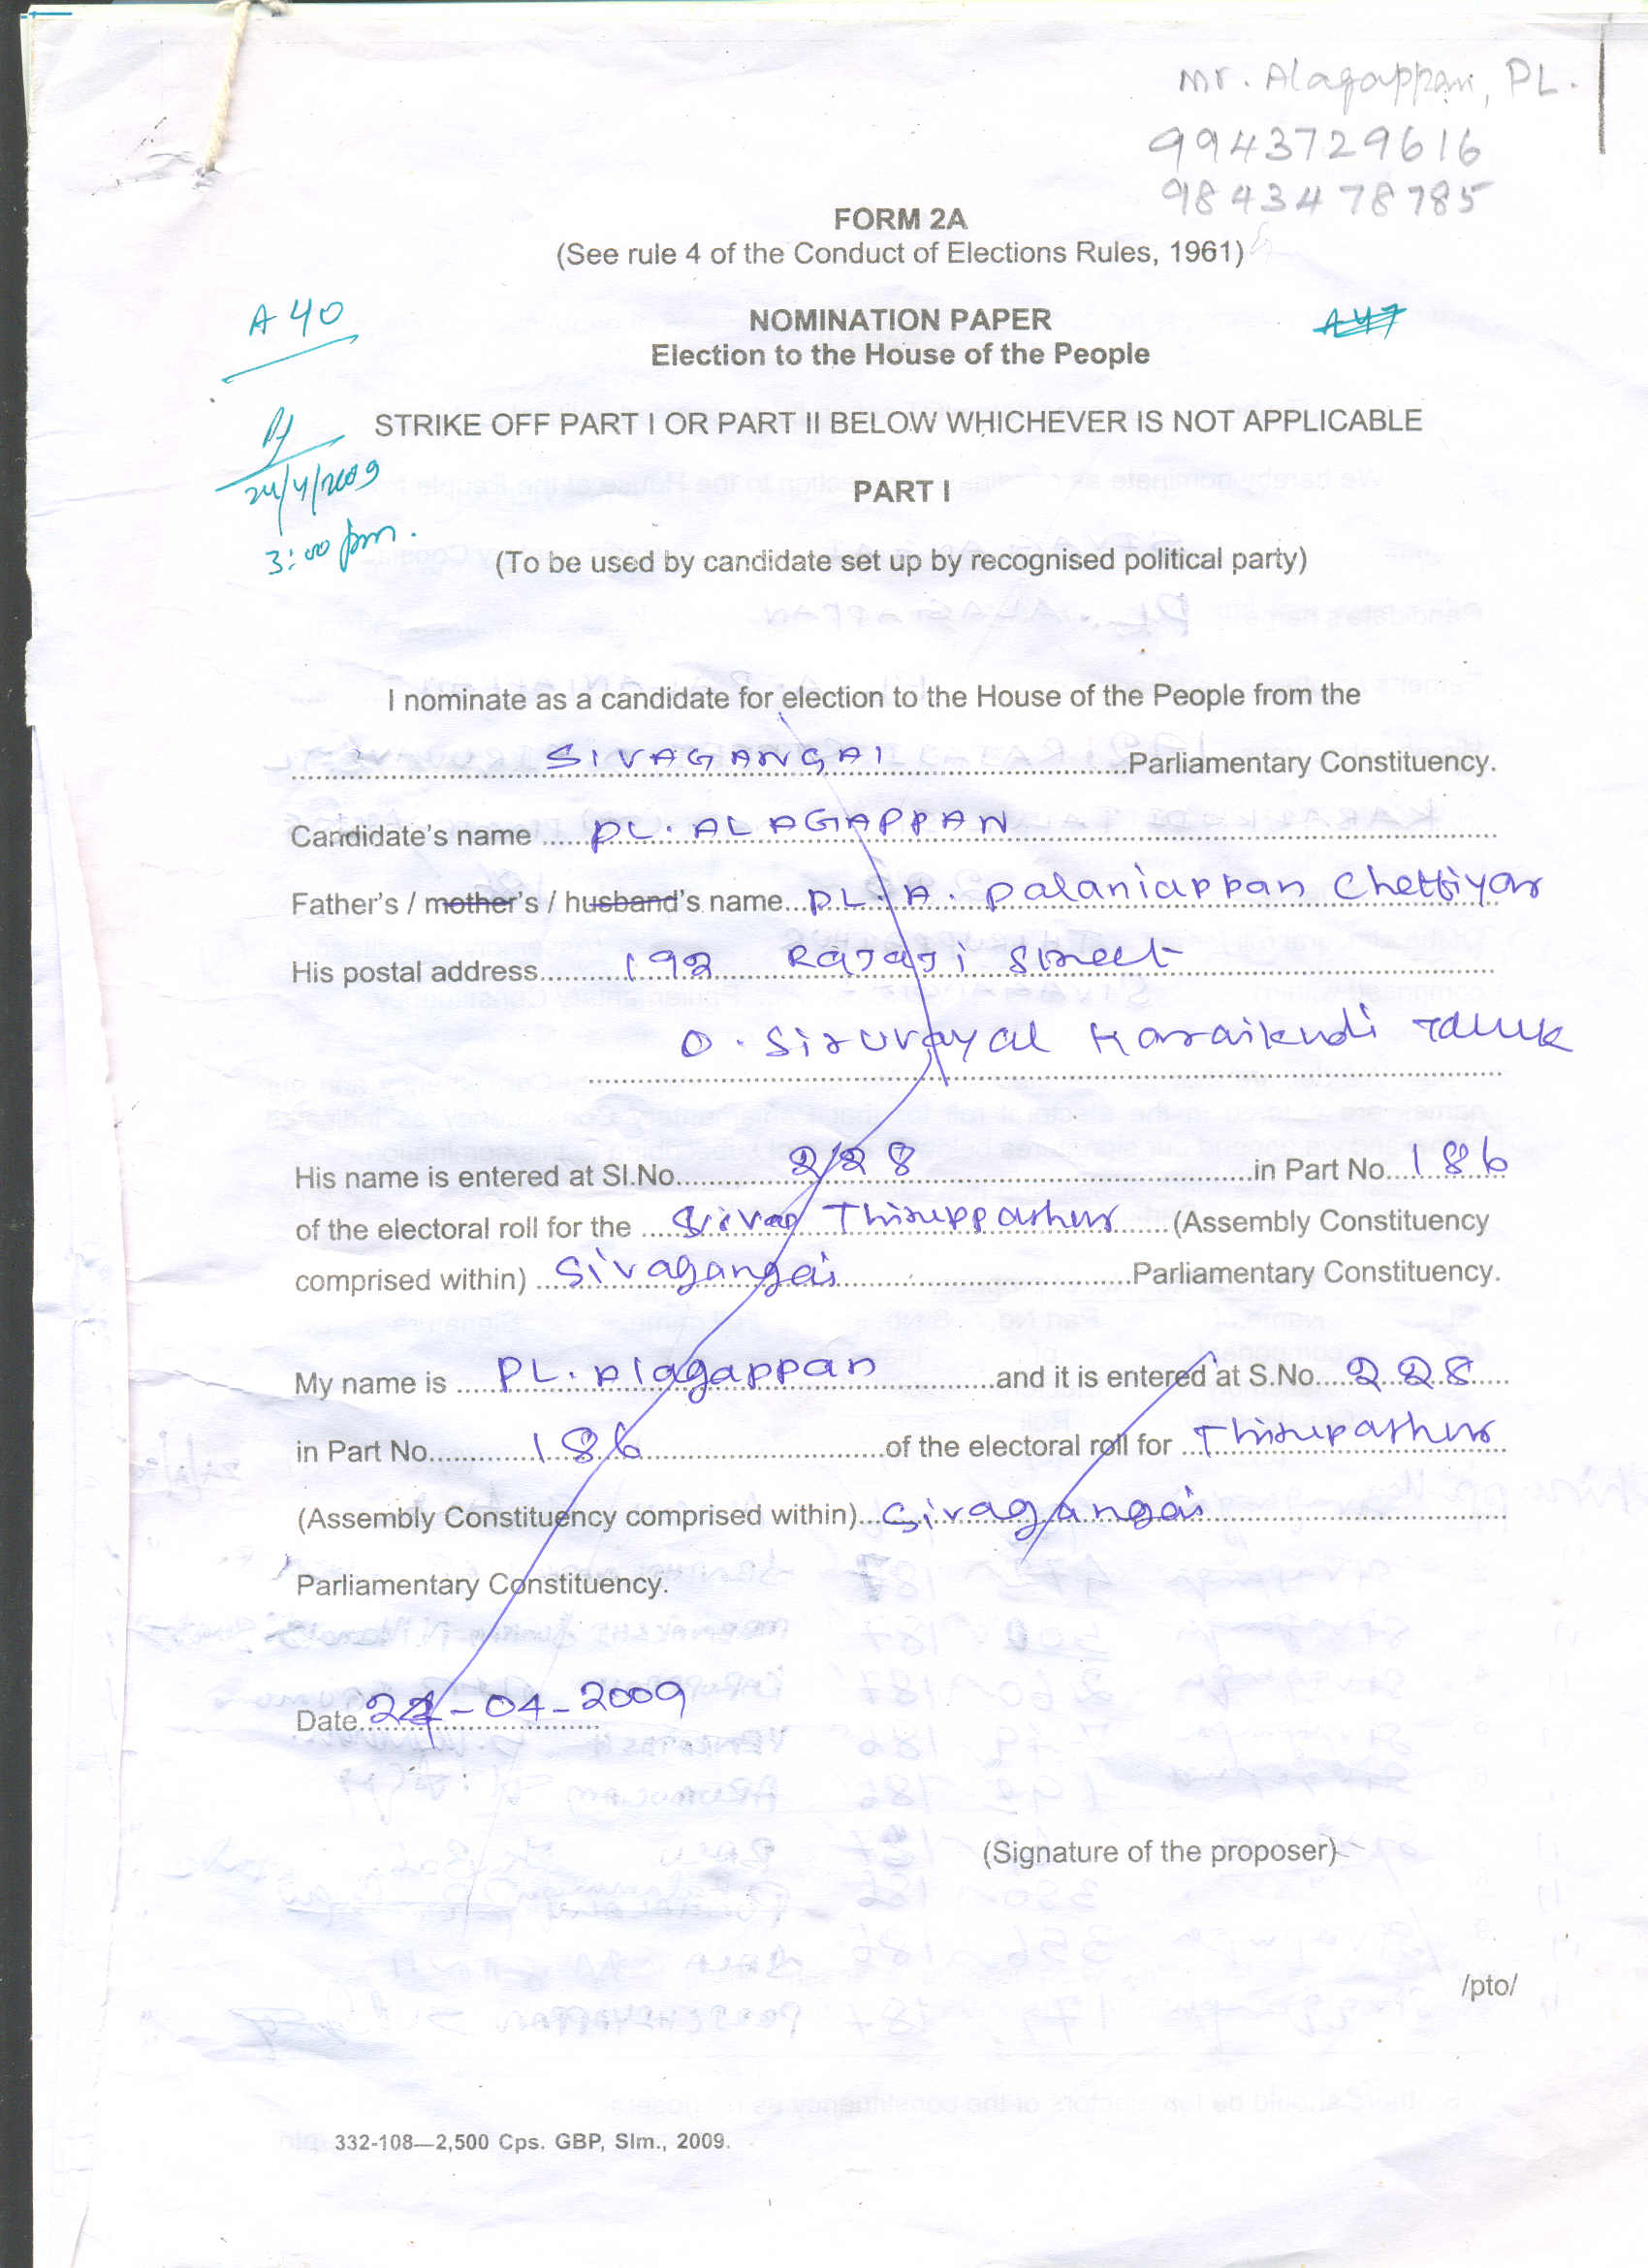 Mr. Alagappan, PL.
9943729616
9843478785
FORM 2A
(See rule 4 of the Conduct of Elections Rules, 1961)
A 40
NOMINATION PAPER
A47
Election to the House of the People
STRIKE OFF PART I OR PART II BELOW WHICHEVER IS NOT APPLICABLE
24/4/2009
PART I
3:00 pm.
(To be used by candidate set up by recognised political party)
I nominate as a candidate for election to the House of the People from the
SIVAGANGAI Parliamentary Constituency.
Candidate's name PL. ALAGAPPAN
Father's / mother's / husband's name PL. A. Palaniappan Chettiyar
His postal address 192 Rajaji Street
O. Siruvayal Karaikudi Taluk
His name is entered at Sl.No. 228 in Part No. 186
of the electoral roll for the Thiruppathur (Assembly Constituency
comprised within) Sivagangai Parliamentary Constituency.
My name is PL. Alagappan and it is entered at S.No. 228
in Part No. 186 of the electoral roll for Thirupathur
(Assembly Constituency comprised within) Sivagangai
Parliamentary Constituency.
Date 24-04-2009
(Signature of the proposer)
/pto/
332-108—2,500 Cps. GBP, Slm., 2009.